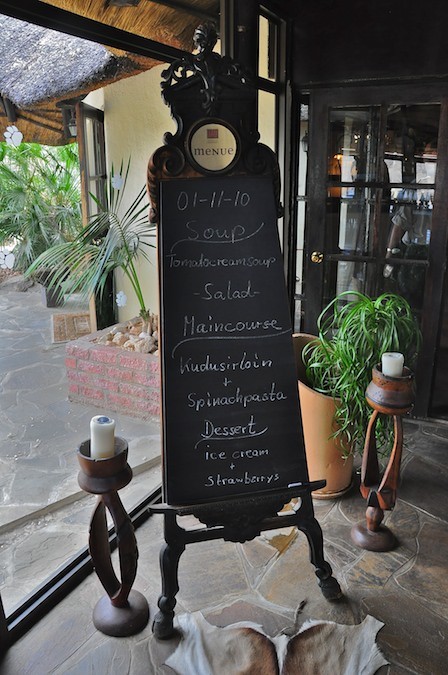 MENUE
01-11-10
Soup
Tomatocreamsoup
-Salad-
Maincourse
Kudusirloin
+
Spinachpasta
Dessert
ice cream
+
Strawberrys